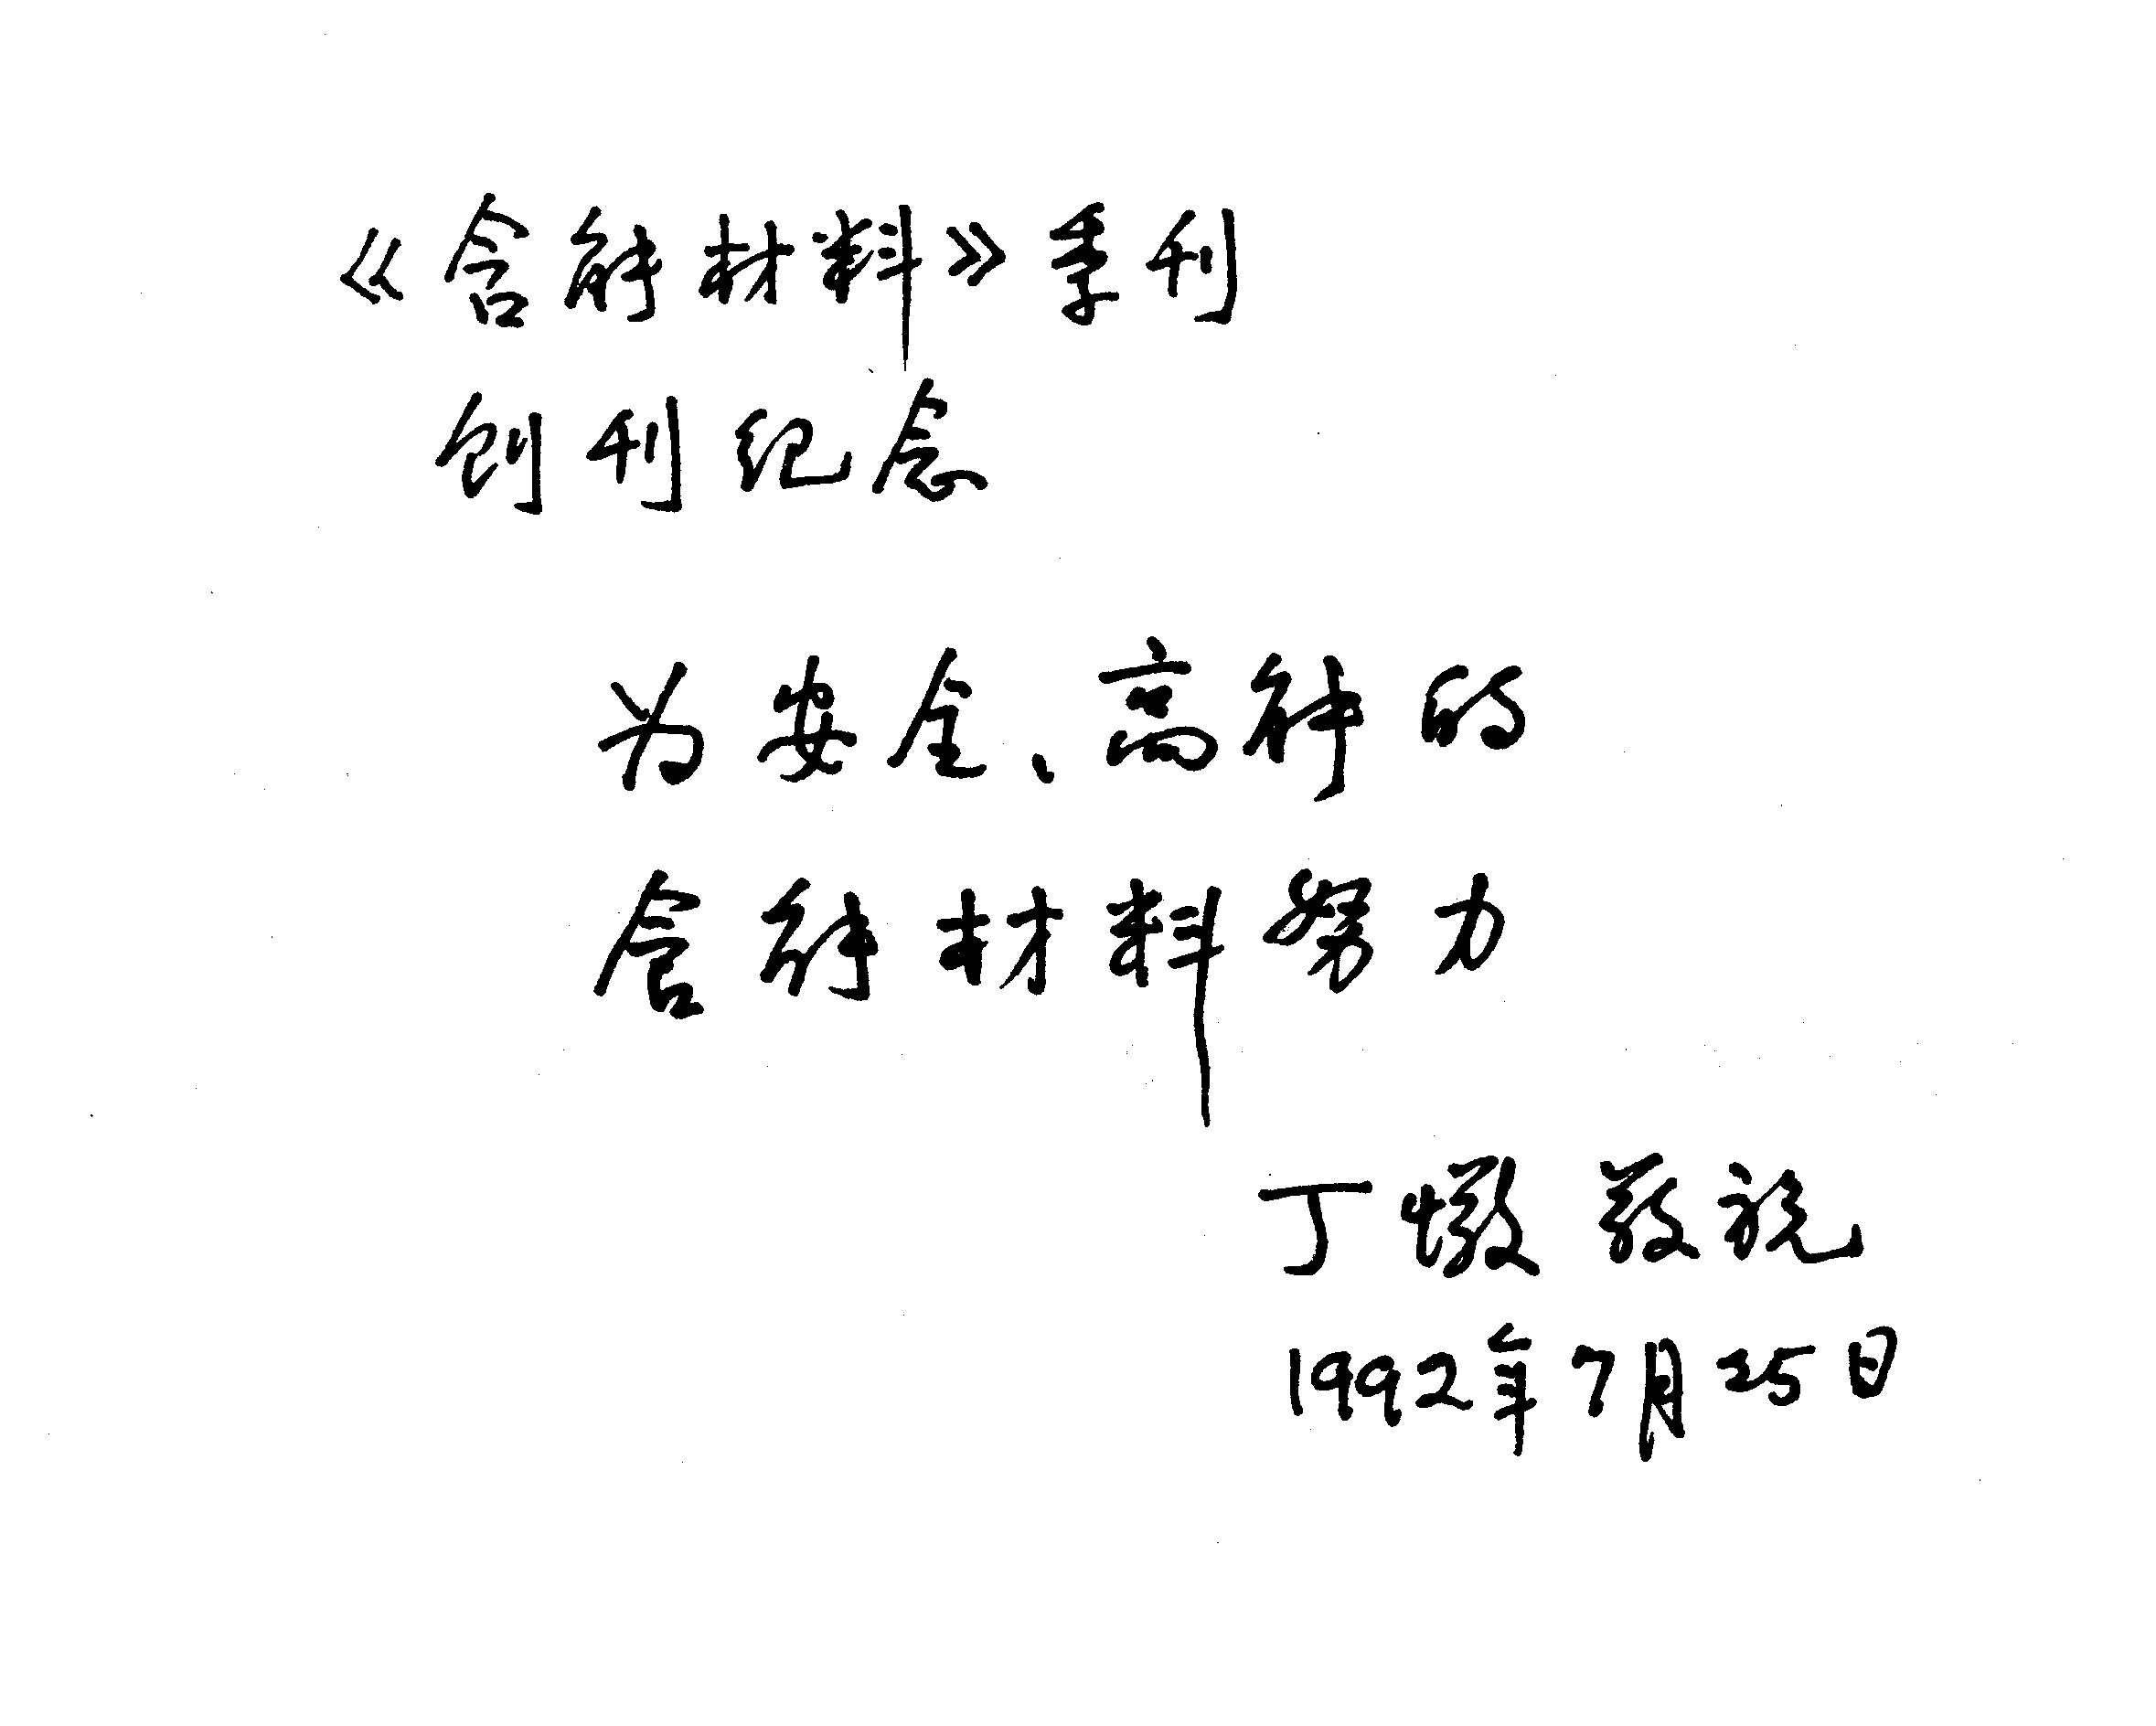 《含能材料》季刊
创刊纪念
为安全、高能的
含能材料努力
丁儆敬祝
1992年7月25日